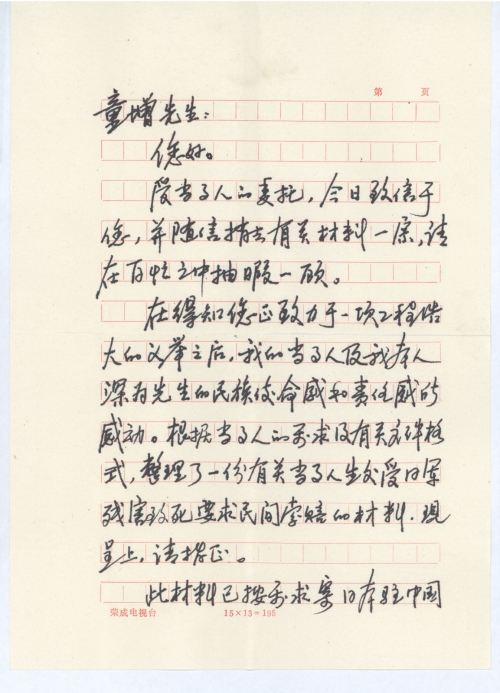 第 页
童增先生：
您好。
受当事人的委托，今日致信于
您，并随信捎去有关材料一宗，请
在百忙之中抽暇一顾。
在得知您正致力于一项工程浩
大的义举之后，我的当事人及我本人
深为先生的民族使命感和责任感所
感动。根据当事人的要求及有关文件格
式，整理了一份有关当事人生父受日军
残害致死要求民间索赔的材料，现
呈上，请指正。
此材料已按要求寄日本驻中国
荣成电视台 15×13=195